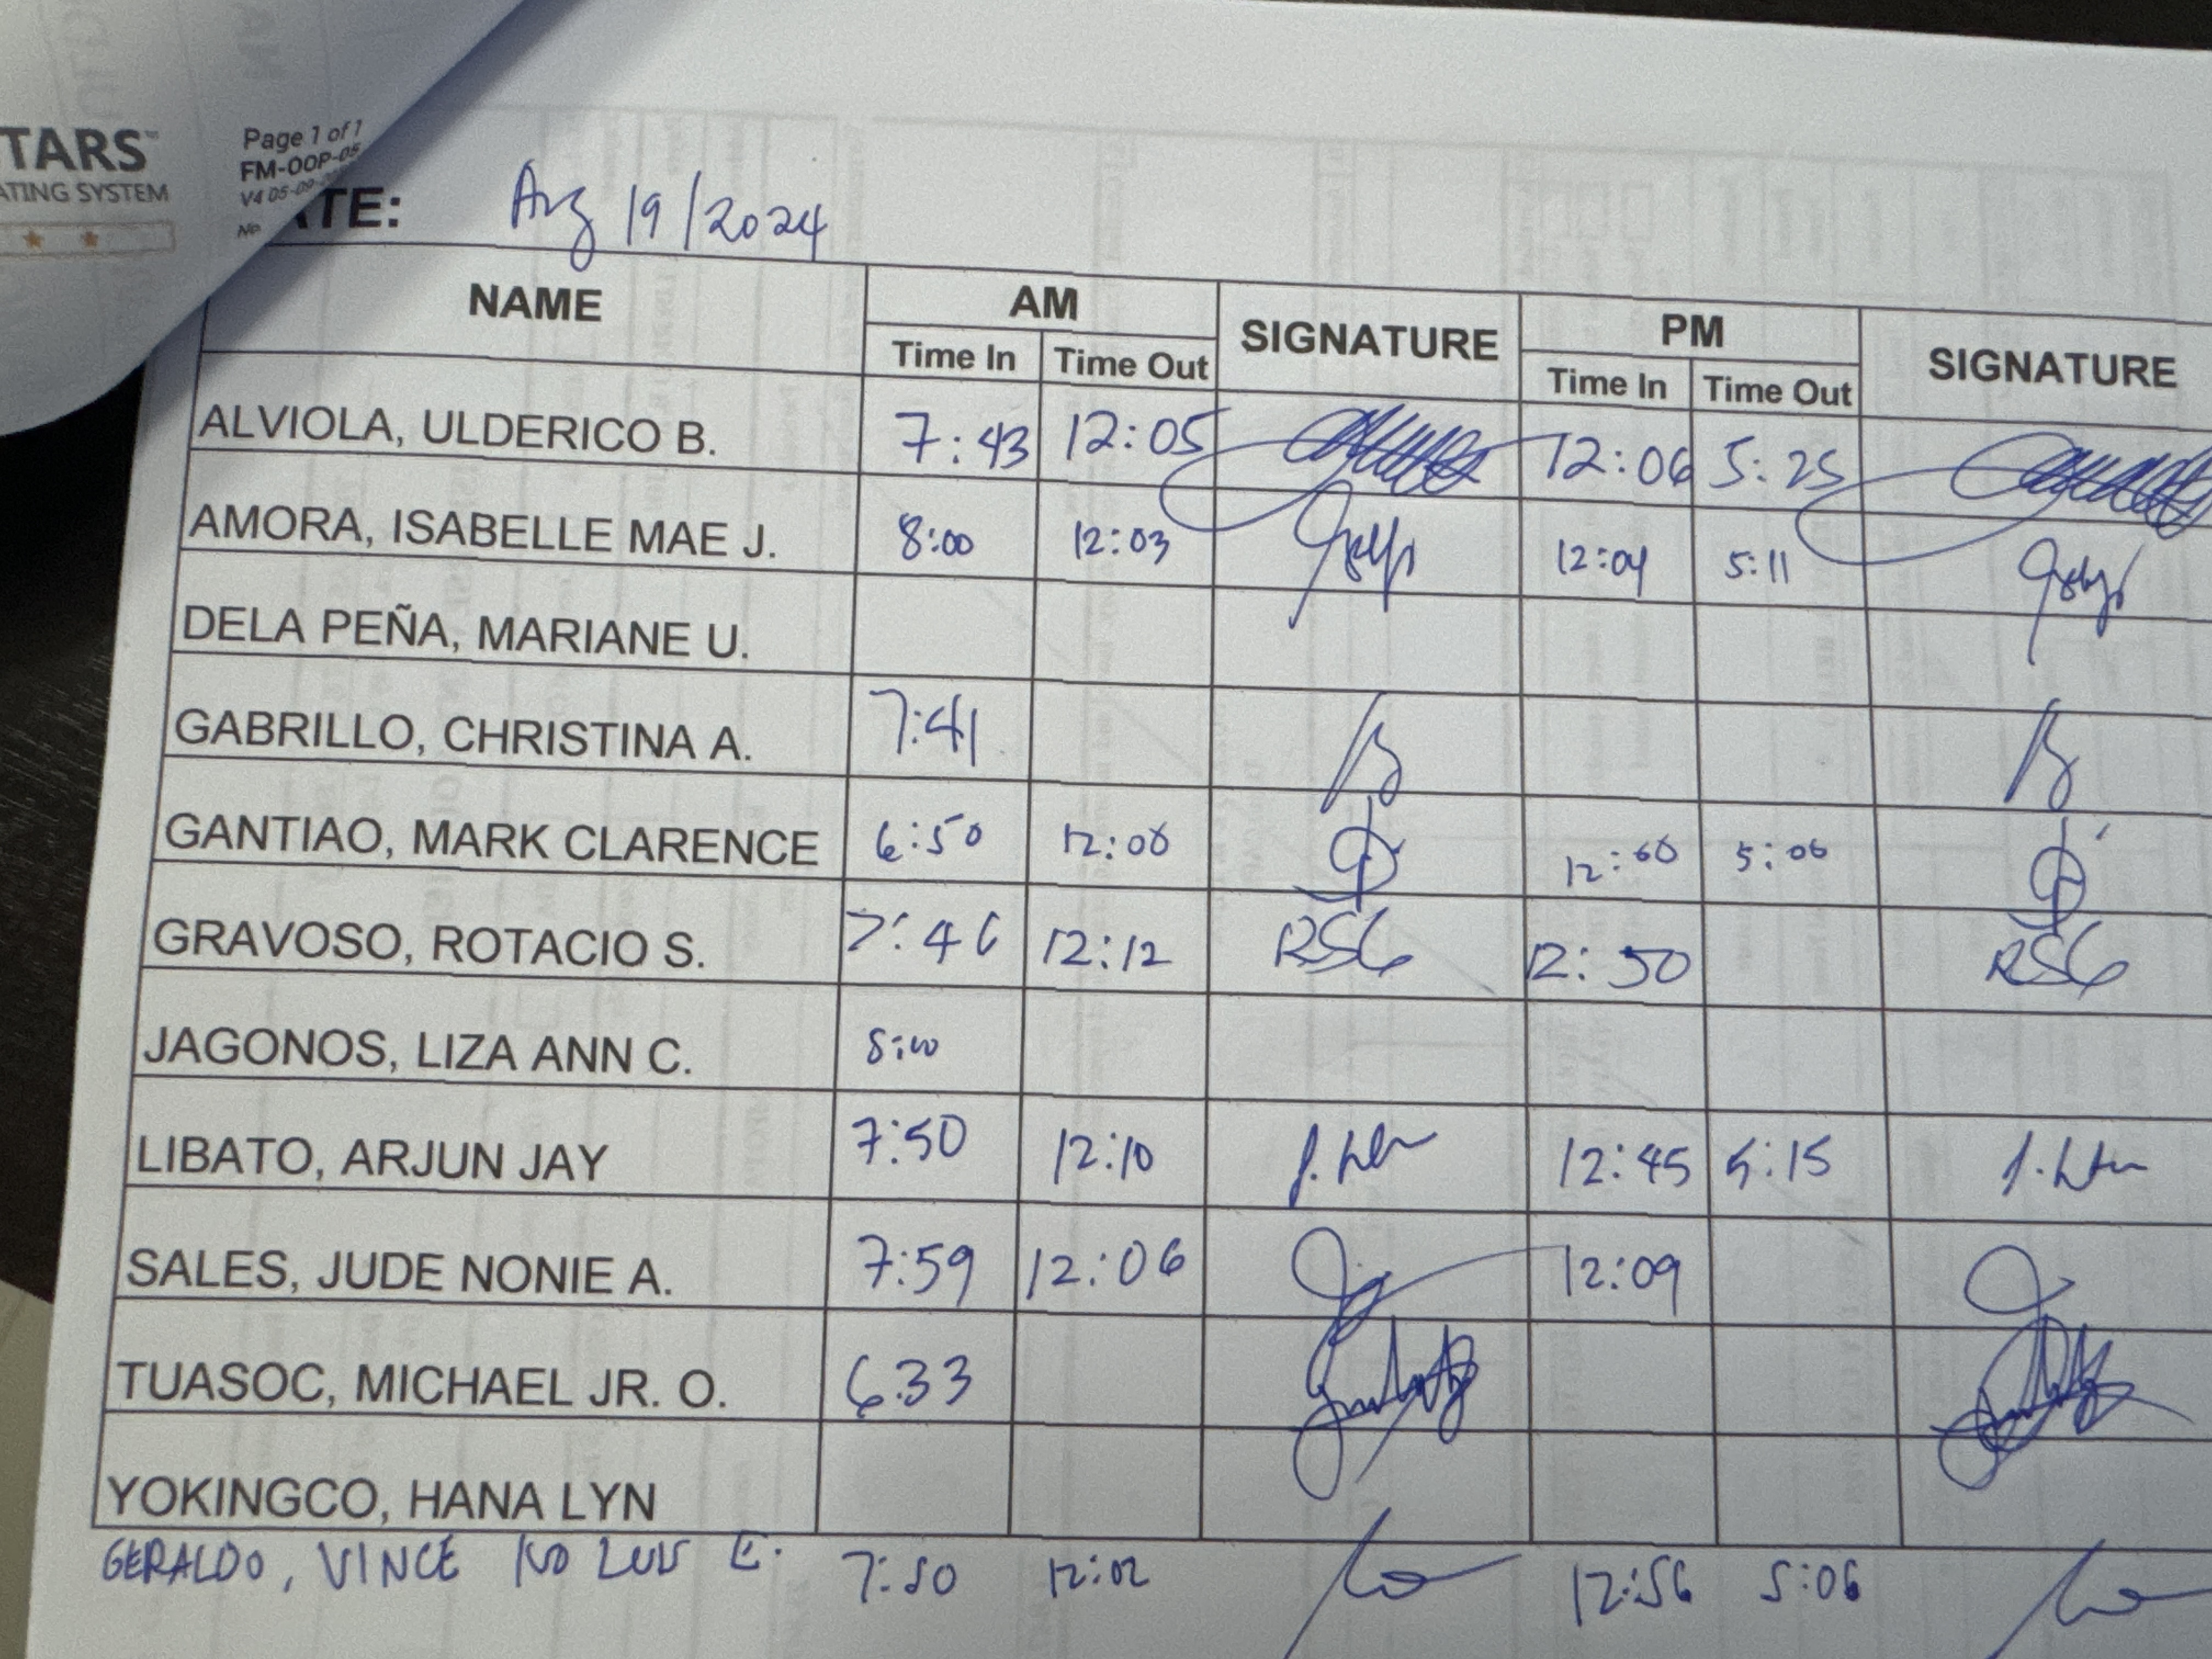 TARS™
ATING SYSTEM
Page 1 of 1
FM-OOP-05
V4 05-09-
No.
ATE: Aug 19/2024
NAME AM SIGNATURE PM SIGNATURE
Time In Time Out Time In Time Out
ALVIOLA, ULDERICO B. 7:43 12:05 12:06 5:25
AMORA, ISABELLE MAE J. 8:00 12:03 12:04 5:11
DELA PEÑA, MARIANE U.
GABRILLO, CHRISTINA A. 7:41
GANTIAO, MARK CLARENCE 6:50 12:00 12:00 5:00
GRAVOSO, ROTACIO S. 7:46 12:12 RSG 12:50 RSG
JAGONOS, LIZA ANN C. 8:00
LIBATO, ARJUN JAY 7:50 12:10 12:45 5:15
SALES, JUDE NONIE A. 7:59 12:06 12:09
TUASOC, MICHAEL JR. O. 6:33
YOKINGCO, HANA LYN
GERALDO, VINCE E. 7:50 12:02 12:56 5:06